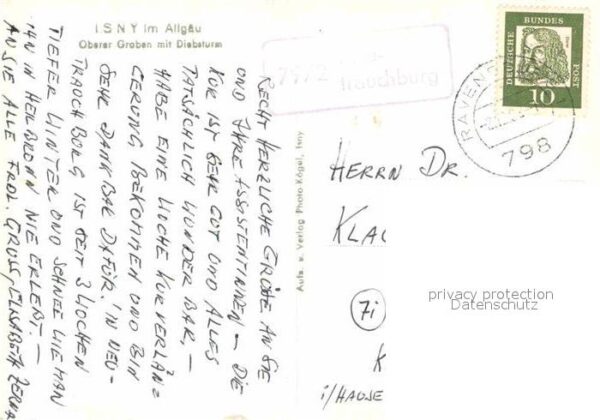 ISNY im Allgäu
Oberer Graben mit Diebsturm
RECHT HERZLICHE GRÜSSE AN SIE
UND IHRE ASSISTENTINNEN – DIE
KUR IST SEHR GUT UND ALLES
TATSÄCHLICH WUNDERBAR, –
HABE EINE WOCHE KURVERLÄN=
GERUNG BEKOMMEN UND BIN
SEHR DANKBAR DAFÜR. IN NEU-
TRAUCHBURG IST SEIT 3 WOCHEN
TIEFER WINTER UND SCHNEE WIE MAN
IHN IN HEILBRONN NIE ERLEBT. –
AN SIE ALLE FRDL. GRUSS, ELISABETH
Aufn. u. Verlag Photo-Kögel, Isny
7972
trauchburg
DEUTSCHE BUNDES POST
10
RAVENS
798
HERRN DR.
KLA
7i
K
i/HAUSE
privacy protection
Datenschutz